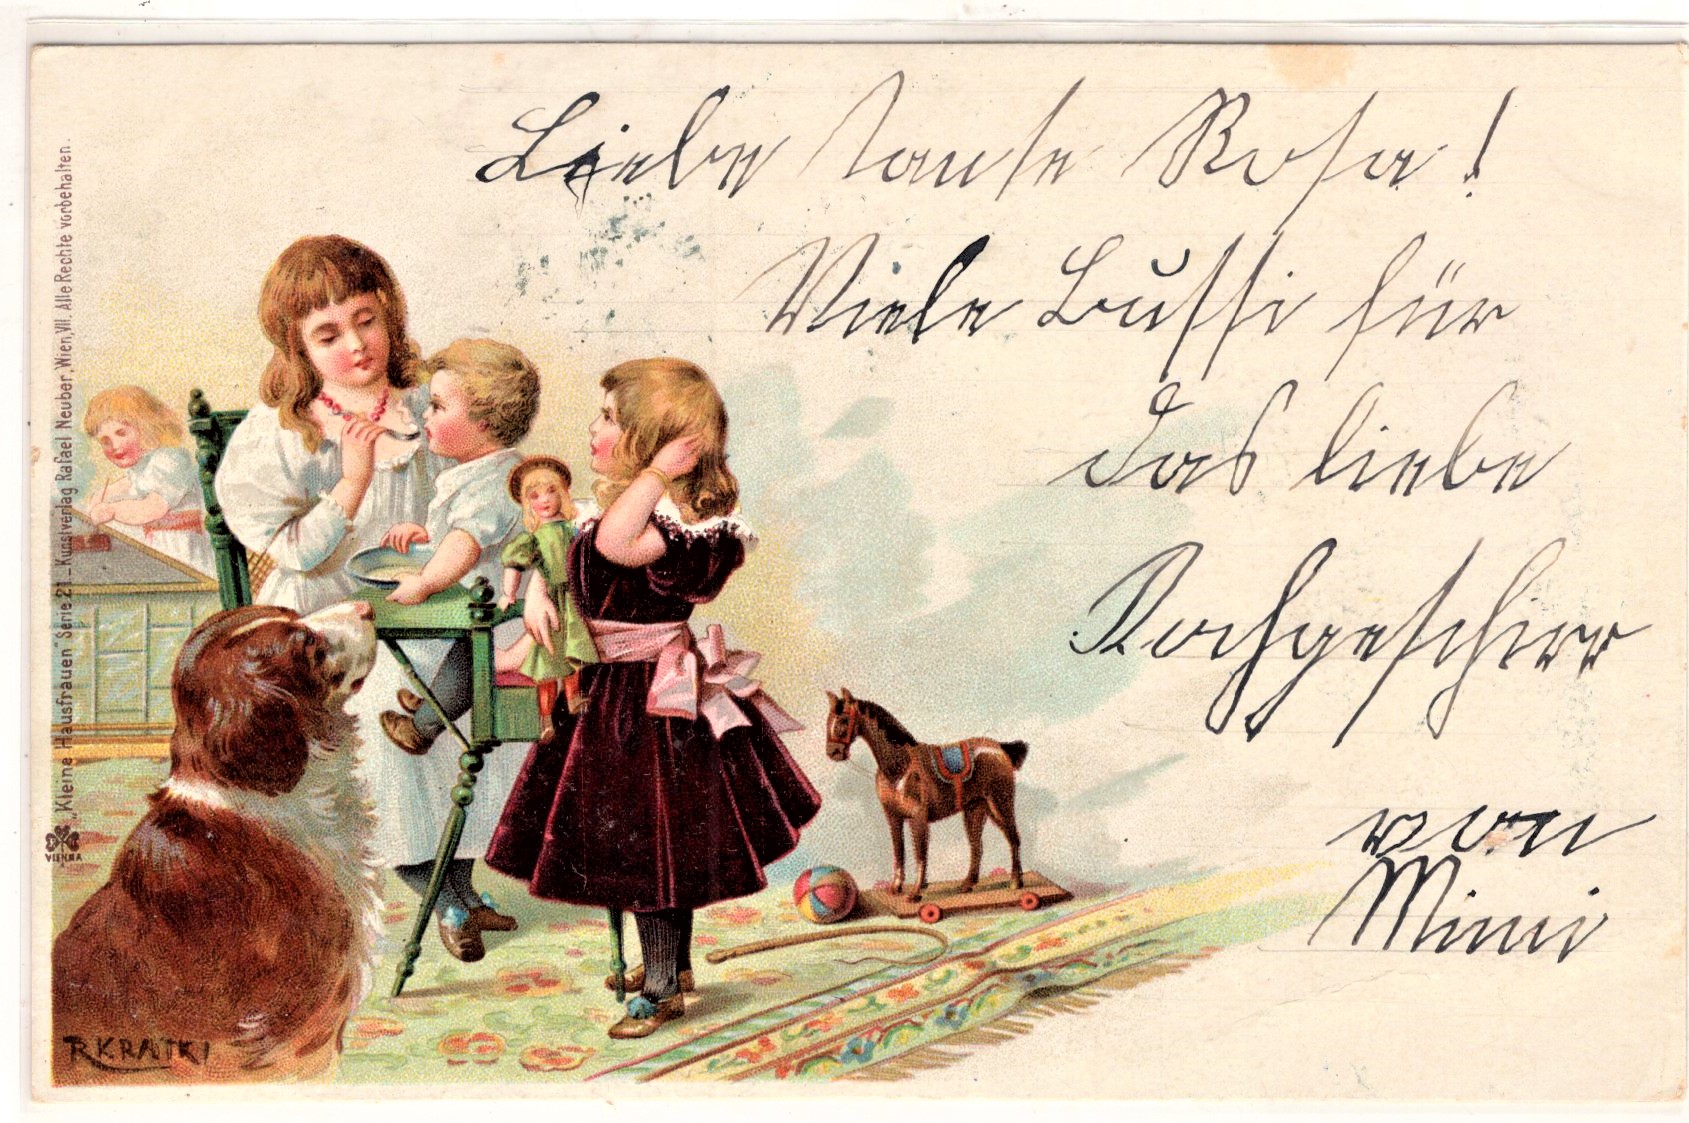 Liebe Tante Rosa!
Viele Bussi für
das liebe
Kochgeschirr
von
Mimi
"Kleine Hausfrauen" Serie 21.–Kunstverlag Rafael Neuber, Wien, VII. Alle Rechte vorbehalten.
VIENNA
R KRATKI